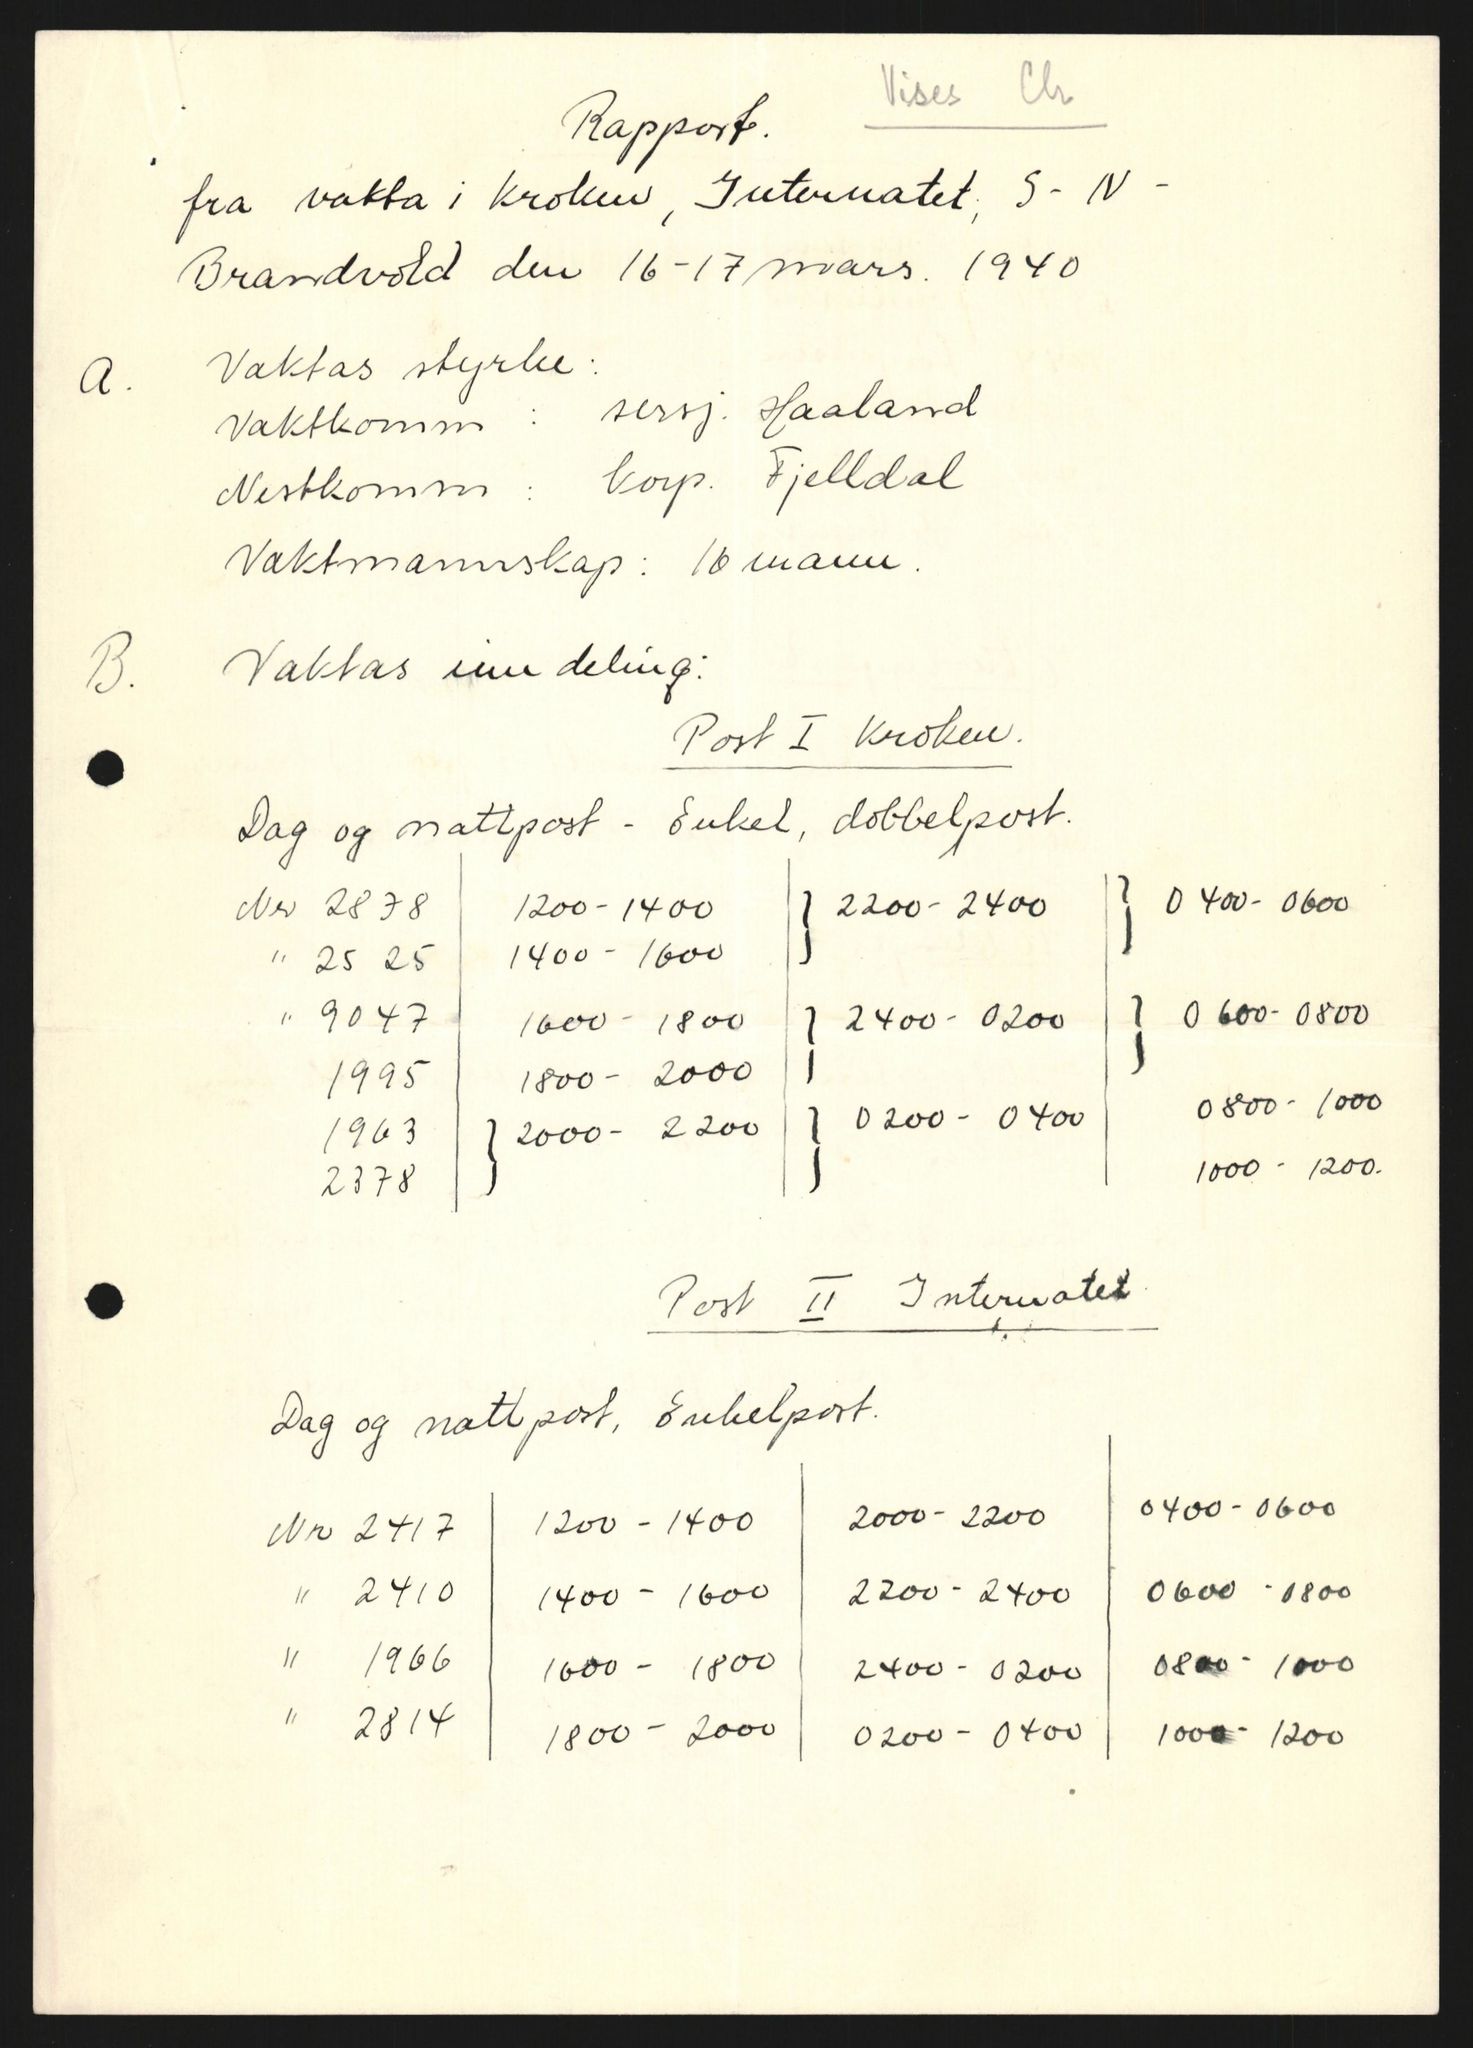 Vises Ch
Rapport.
fra vakta i Kroken, Internatet, S- N -
Brandvold den 16-17 mars. 1940
A. Vaktas styrke:
Vaktkomm : sersj. Haaland
Nestkomm : korp. Fjelldal
Vaktmannskap: 16 mann.
B. Vaktas inndeling:
Post I Kroken.
Dag og nattpost - Enkel, dobbelpost.
Nr 2878 1200-1400 } 2200-2400 } 0400-0600
" 2525 1400-1600
" 9047 1600-1800 } 2400-0200 } 0600-0800
1995 1800-2000
1963 } 2000-2200 } 0200-0400 0800-1000
2378 1000-1200.
Post II Internatet
Dag og nattpost, Enkelpost.
Nr 2417 1200-1400 2000-2200 0400-0600
" 2410 1400-1600 2200-2400 0600-0800
" 1966 1600-1800 2400-0200 0800-1000
" 2814 1800-2000 0200-0400 1000-1200